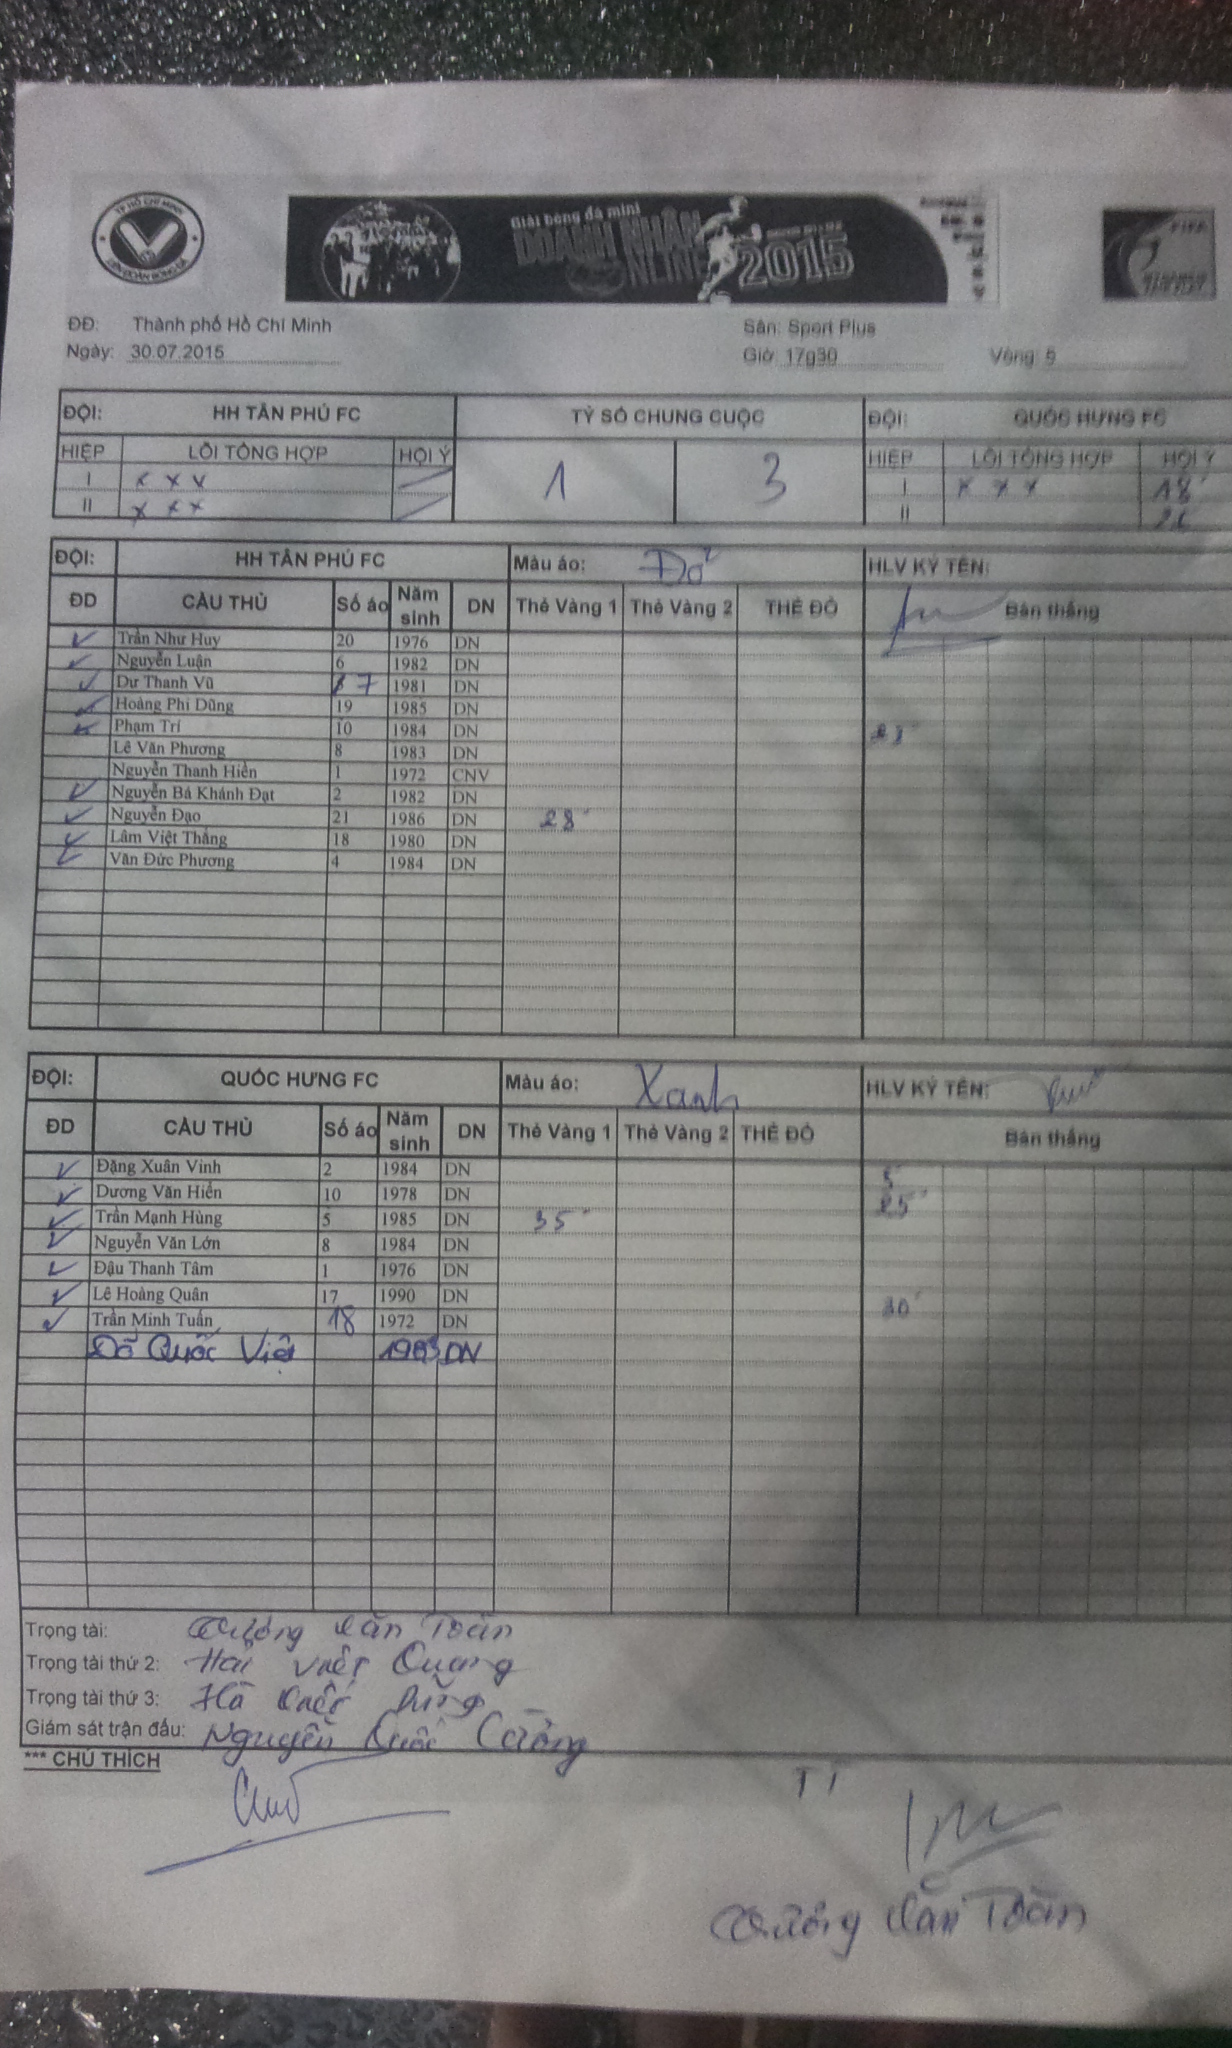 TP HỒ CHÍ MINH
LIÊN ĐOÀN BÓNG ĐÁ
Giải bóng đá mini
DOANH NHÂN
2015
FIFA
ĐĐ: Thành phố Hồ Chí Minh Sân: Sport Plus
Ngày: 30.07.2015 Giờ: 17g30 Vòng: 5
ĐỘI: HH TÂN PHÚ FC TỶ SỐ CHUNG CUỘC ĐỘI: QUỐC HƯNG FC
HIỆP LỖI TỔNG HỢP HỘI Ý 1 3 HIỆP LỖI TỔNG HỢP HỘI Ý
I x x x I x x x 18'
II x x x II
ĐỘI: HH TÂN PHÚ FC Màu áo: Đỏ HLV KÝ TÊN:
ĐD CẦU THỦ Số áo Năm sinh DN Thẻ Vàng 1 Thẻ Vàng 2 THẺ ĐỎ Bàn thắng
Trần Như Huy 20 1976 DN
Nguyễn Luận 6 1982 DN
Dư Thanh Vũ 7 1981 DN
Hoàng Phi Dũng 19 1985 DN
Phạm Trí 10 1984 DN
Lê Văn Phương 8 1983 DN
Nguyễn Thanh Hiền 1 1972 CNV
Nguyễn Bá Khánh Đạt 2 1982 DN
Nguyễn Đạo 21 1986 DN 28'
Lâm Việt Thắng 18 1980 DN
Văn Đức Phương 4 1984 DN
ĐỘI: QUỐC HƯNG FC Màu áo: Xanh HLV KÝ TÊN:
ĐD CẦU THỦ Số áo Năm sinh DN Thẻ Vàng 1 Thẻ Vàng 2 THẺ ĐỎ Bàn thắng
Đặng Xuân Vinh 2 1984 DN 5'
Dương Văn Hiển 10 1978 DN 25'
Trần Mạnh Hùng 5 1985 DN 35'
Nguyễn Văn Lớn 8 1984 DN
Đậu Thanh Tâm 1 1976 DN
Lê Hoàng Quân 17 1990 DN 30'
Trần Minh Tuấn 18 1972 DN
Đỗ Quốc Việt DN
Trọng tài: Trương Văn Toàn
Trọng tài thứ 2: Quang
Trọng tài thứ 3: Hà Quốc Dũng
Giám sát trận đấu: Nguyễn Quốc Cường
*** CHÚ THÍCH
TT
Trương Văn Toàn